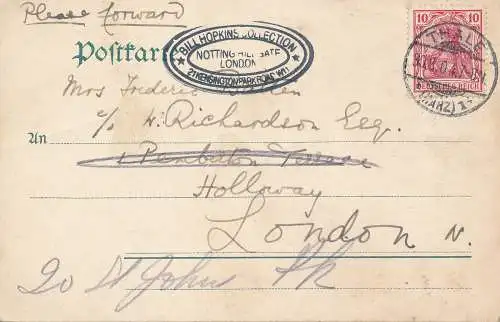 Please Forward
Postkarte
★ BILL HOPKINS COLLECTION ★
NOTTING HILL GATE
LONDON
21 KENSINGTON PARK ROAD W11
10 10
DEUTSCHES REICH
THALE
(HARZ)
Mrs Frederic
c/o W. Richardson Esq.
An
1 Pemberton Terrace
Holloway
London N.
20 St Johns Pk